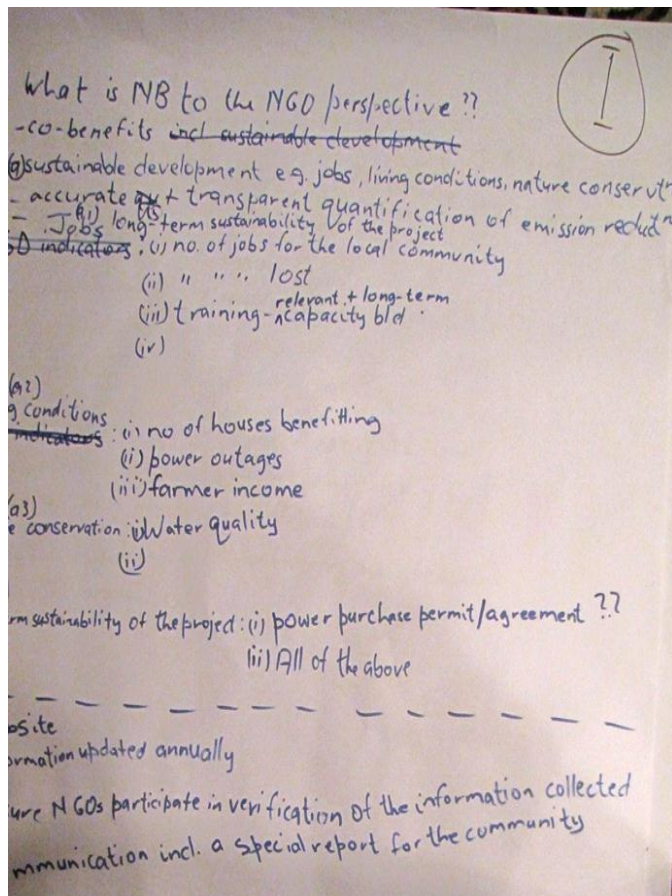 I
What is NB to the NGO perspective ??
-co-benefits incl sustainable development
(a) sustainable development e.g. jobs, living conditions, nature conservtn
- accurate + transparent quantification of emission reductn
- long-term sustainability of the project
(a1) Jobs
indicators : (i) no. of jobs for the local community
(ii) " " " lost
(iii) training - relevant + long-term capacity bld.
(iv)
(a2)
g conditions
indicators : (i) no of houses benefitting
(i) power outages
(iii) farmer income
(a3)
e conservation : (i) Water quality
(ii)
rm sustainability of the project : (i) power purchase permit/agreement ??
(ii) All of the above
bsite
ormation updated annually
ure NGOs participate in verification of the information collected
mmunication incl. a special report for the community